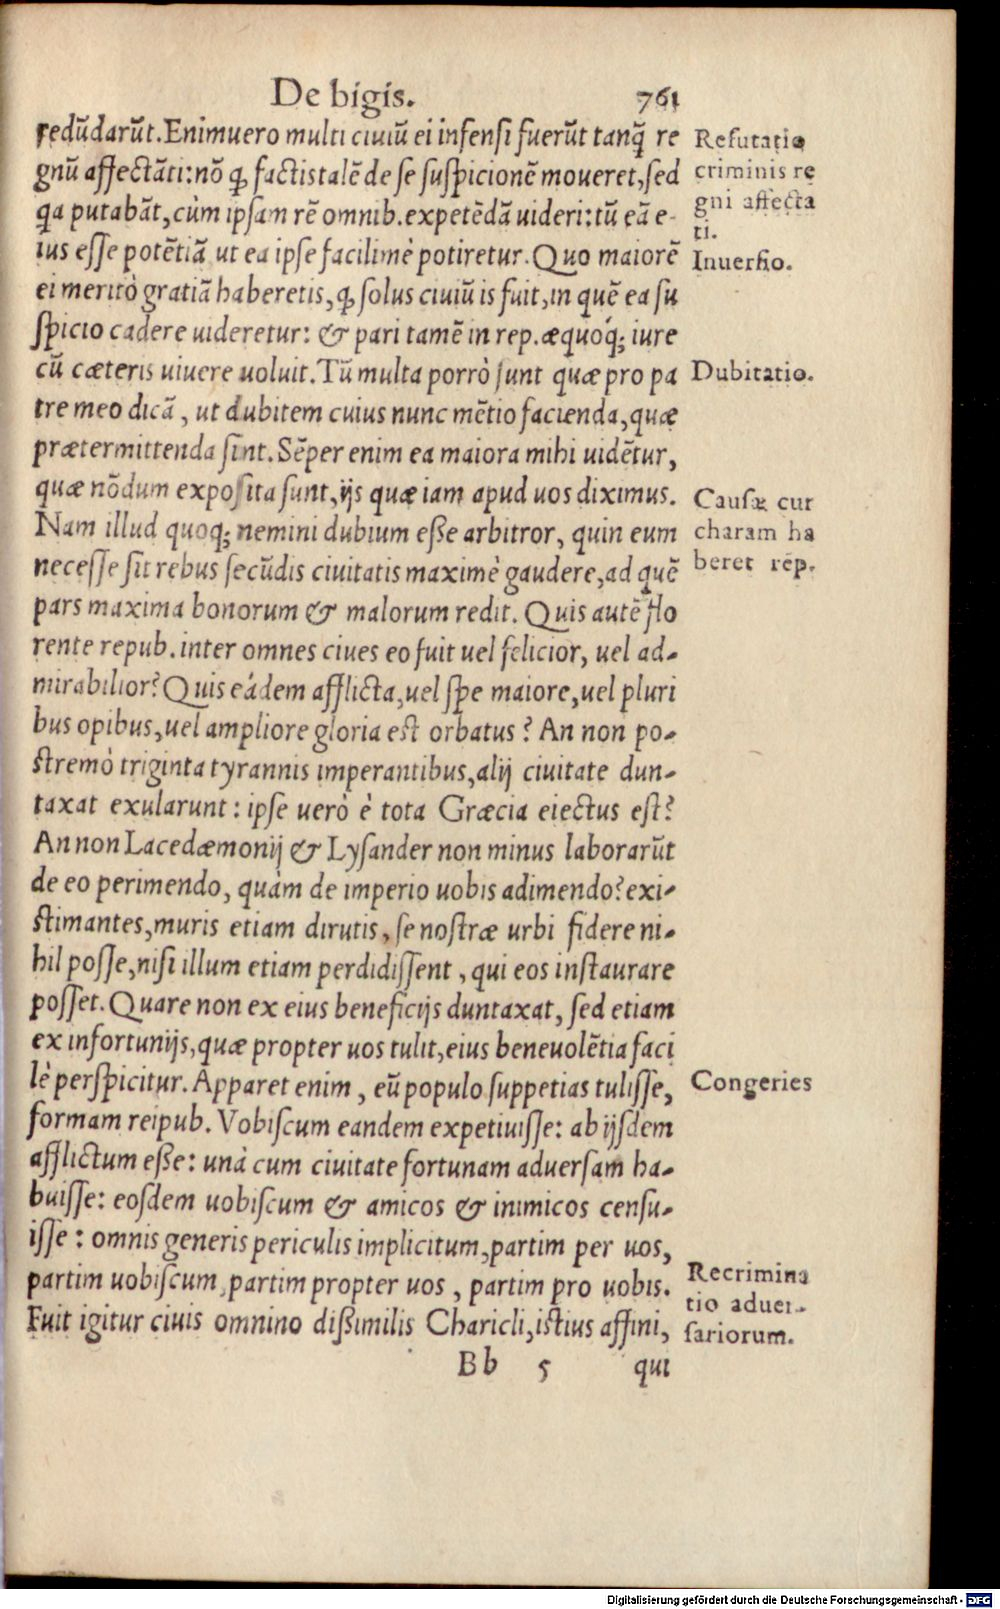 De bigis. 761
redūdarūt. Enimuero multi ciuiū ei infensi fuerūt tanq̃ re
gnū affectāti: nō ꝙ factis talē de se suspicionē moueret, sed
qa putabāt, cùm ipsam rē omnib. expetēdā uideri: tū eā e-
ius esse potētiā ut ea ipse facilimè potiretur. Quo maiorē
ei meritò gratiā haberetis, ꝙ solus ciuiū is fuit, in quē ea su
spicio cadere uideretur: & pari tamē in rep. æquóq; iure
cū cæteris uiuere uoluit. Tū multa porrò sunt quæ pro pa
tre meo dicā, ut dubitem cuius nunc mētio facienda, quæ
prætermittenda sint. Sēper enim ea maiora mihi uidētur,
quæ nōdum exposita sunt, ijs quæ iam apud uos diximus.
Nam illud quoq; nemini dubium eße arbitror, quin eum
necesse sit rebus secūdis ciuitatis maximè gaudere, ad quē
pars maxima bonorum & malorum redit. Quis autē flo
rente repub. inter omnes ciues eo fuit uel felicior, uel ad-
mirabilior? Quis eádem afflicta, uel spe maiore, uel pluri
bus opibus, uel ampliore gloria est orbatus? An non po-
stremò triginta tyrannis imperantibus, alij ciuitate dun-
taxat exularunt: ipse uerò è tota Græcia eiectus est?
An non Lacedæmonij & Lysander non minus laborarūt
de eo perimendo, quàm de imperio uobis adimendo? exi-
stimantes, muris etiam dirutis, se nostræ urbi fidere ni-
hil posse, nisi illum etiam perdidissent, qui eos instaurare
posset. Quare non ex eius beneficijs duntaxat, sed etiam
ex infortunijs, quæ propter uos tulit, eius beneuolētia faci
lè perspicitur. Apparet enim, eū populo suppetias tulisse,
formam reipub. Vobiscum eandem expetiuisse: ab ijsdem
afflictum eße: unà cum ciuitate fortunam aduersam ha-
buisse: eosdem uobiscum & amicos & inimicos censu-
isse: omnis generis periculis implicitum, partim per uos,
partim uobiscum, partim propter uos, partim pro uobis.
Fuit igitur ciuis omnino dißimilis Charicli, istius affini,
Bb 5 qui
Refutatio
criminis re
gni affecta
ti.
Inuersio.
Dubitatio.
Causæ cur
charam ha
beret rēp.
Congeries
Recrimina
tio aduer-
sariorum.
Digitalisierung gefördert durch die Deutsche Forschungsgemeinschaft - DFG